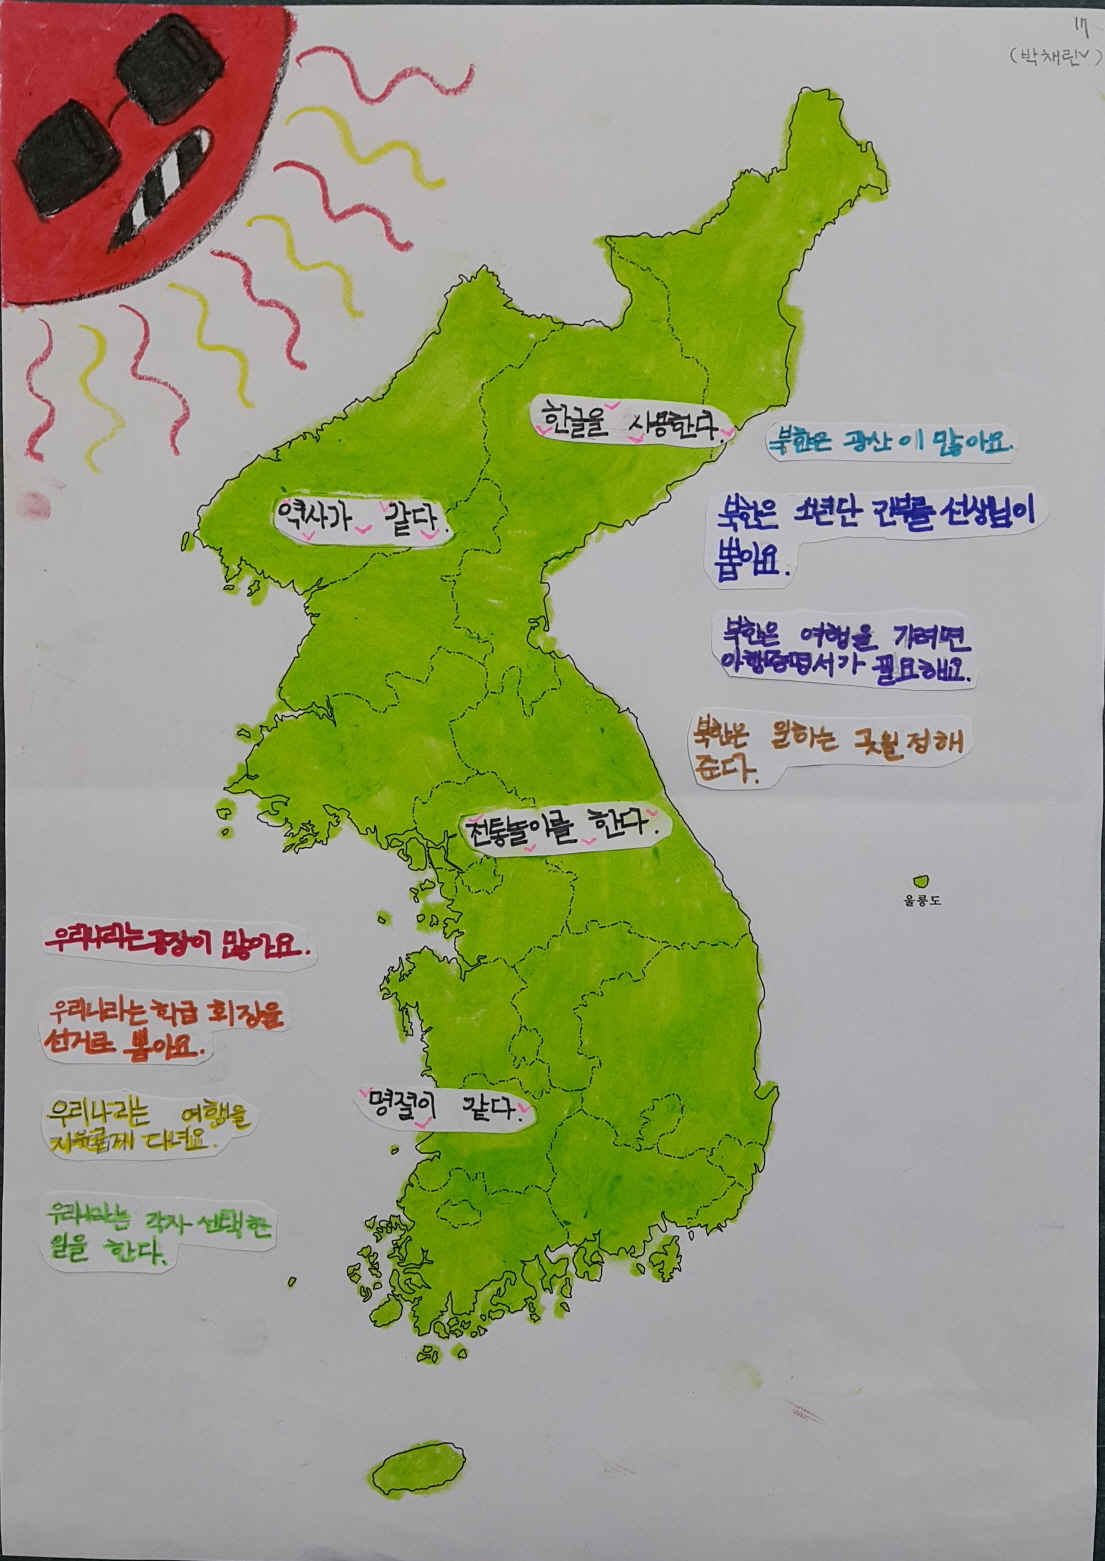 17
(박채린)
한글을 사용한다.
북한은 광산이 많아요.
역사가 같다.
북한은 소년단 간부를 선생님이
뽑아요.
북한은 여행을 가려면
여행증명서가 필요해요.
북한은 원하는 곳을 정해
준다.
전통놀이를 한다.
울릉도
우리나라는 공장이 많아요.
우리나라는 학급 회장을
선거로 뽑아요.
명절이 같다.
우리나라는 여행을
자유롭게 다녀요.
우리나라는 각자 선택한
일을 한다.